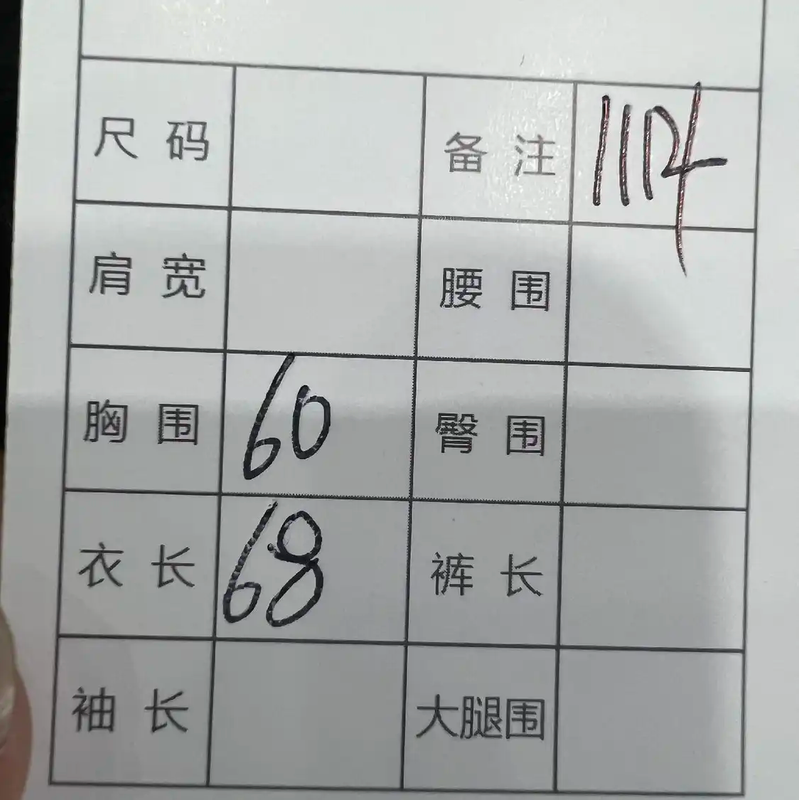 尺码 备注
肩宽 腰围
胸围 60 臀围
衣长 68 裤长
袖长 大腿围